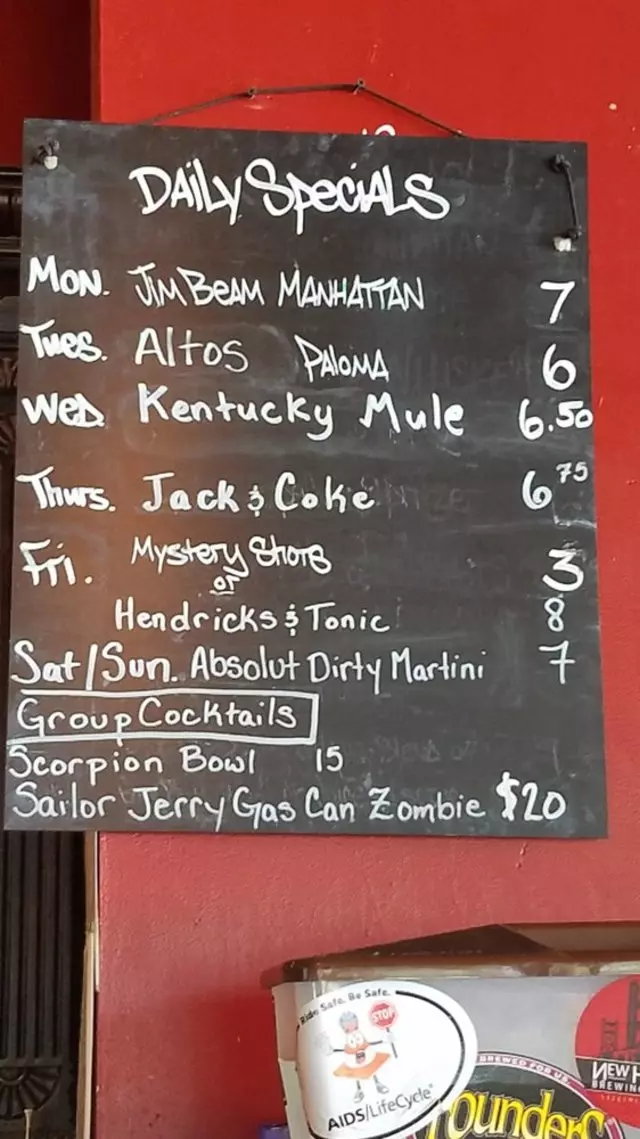 DAILY SPECIALS
MON. JIM BEAM MANHATTAN 7
Tues. Altos PALOMA 6
Wed Kentucky Mule 6.50
Thurs. Jack & Coke 6 75
Fri. Mystery Shots 3
or
Hendricks & Tonic 8
Sat/Sun. Absolut Dirty Martini 7
Group Cocktails
Scorpion Bowl 15
Sailor Jerry Gas Can Zombie $20
Ride Safe. Be Safe.
STOP
AIDS/LifeCycle
BREWED FOR US
ounders
NEW
BREWIN